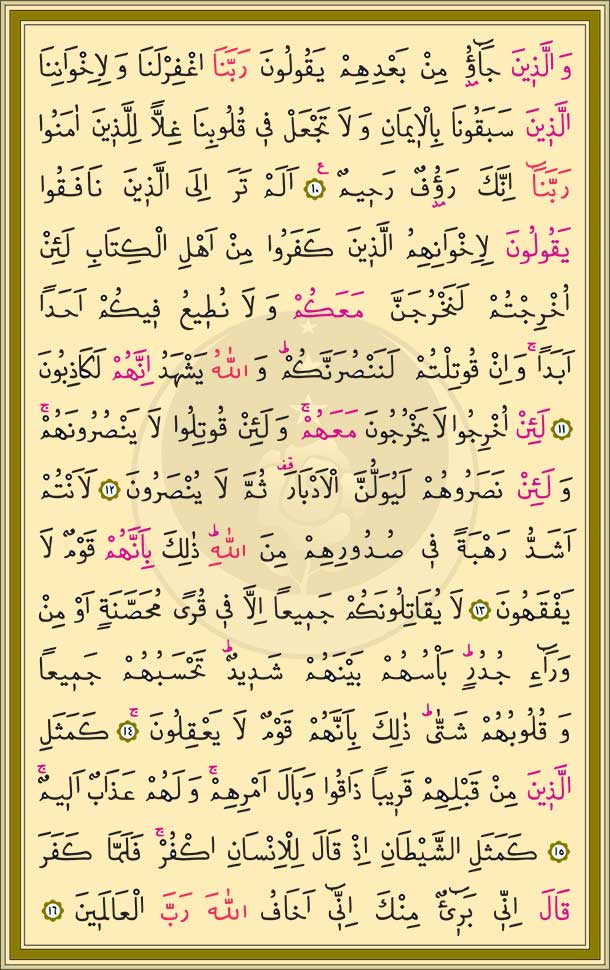 وَالَّذ۪ينَ جَٓاؤُ۫ مِنْ بَعْدِهِمْ يَقُولُونَ رَبَّنَا اغْفِرْلَنَا وَلِاِخْوَانِنَا
الَّذ۪ينَ سَبَقُونَا بِالْا۪يمَانِ وَلَا تَجْعَلْ ف۪ي قُلُوبِنَا غِلًّا لِلَّذ۪ينَ اٰمَنُوا
رَبَّنَٓا اِنَّكَ رَؤُ۫فٌ رَح۪يمٌ ع ﴿١٠﴾ اَلَمْ تَرَ اِلَى الَّذ۪ينَ نَافَقُوا
يَقُولُونَ لِاِخْوَانِهِمُ الَّذ۪ينَ كَفَرُوا مِنْ اَهْلِ الْكِتَابِ لَئِنْ
اُخْرِجْتُمْ لَنَخْرُجَنَّ مَعَكُمْ وَلَا نُط۪يعُ ف۪يكُمْ اَحَدًا
اَبَدًاۙ وَاِنْ قُوتِلْتُمْ لَنَنْصُرَنَّكُمْۜ وَاللّٰهُ يَشْهَدُ اِنَّهُمْ لَكَاذِبُونَ
﴿١١﴾ لَئِنْ اُخْرِجُوا لَا يَخْرُجُونَ مَعَهُمْۚ وَلَئِنْ قُوتِلُوا لَا يَنْصُرُونَهُمْۚ
وَلَئِنْ نَصَرُوهُمْ لَيُوَلُّنَّ الْاَدْبَارَ۠ ثُمَّ لَا يُنْصَرُونَ ﴿١٢﴾ لَاَنْتُمْ
اَشَدُّ رَهْبَةً ف۪ي صُدُورِهِمْ مِنَ اللّٰهِۜ ذٰلِكَ بِاَنَّهُمْ قَوْمٌ لَا
يَفْقَهُونَ ﴿١٣﴾ لَا يُقَاتِلُونَكُمْ جَم۪يعًا اِلَّا ف۪ي قُرًى مُحَصَّنَةٍ اَوْ مِنْ
وَرَٓاءِ جُدُرٍۜ بَاْسُهُمْ بَيْنَهُمْ شَد۪يدٌۜ تَحْسَبُهُمْ جَم۪يعًا
وَقُلُوبُهُمْ شَتّٰىۜ ذٰلِكَ بِاَنَّهُمْ قَوْمٌ لَا يَعْقِلُونَۚ ﴿١٤﴾ كَمَثَلِ
الَّذ۪ينَ مِنْ قَبْلِهِمْ قَر۪يبًا ذَاقُوا وَبَالَ اَمْرِهِمْۚ وَلَهُمْ عَذَابٌ اَل۪يمٌۚ
﴿١٥﴾ كَمَثَلِ الشَّيْطَانِ اِذْ قَالَ لِلْاِنْسَانِ اكْفُرْۚ فَلَمَّا كَفَرَ
قَالَ اِنّ۪ي بَر۪ٓيءٌ مِنْكَ اِنّ۪ٓي اَخَافُ اللّٰهَ رَبَّ الْعَالَم۪ينَ ﴿١٦﴾